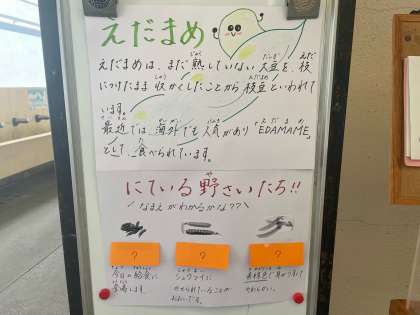 えだまめ
えだまめは、まだ熟していない大豆を、枝
につけたまま収かくしたことから枝豆といわれて
います。
最近では、海外でも人気があり「EDAMAME」
として、食べられています。
にている野さいたち!!
\なまえがわかるかな??\
?
?
?
今日の給食に
登場します。
シュウマイに
のせられていることが
おおいだね。
黄緑色で
やわらかい。